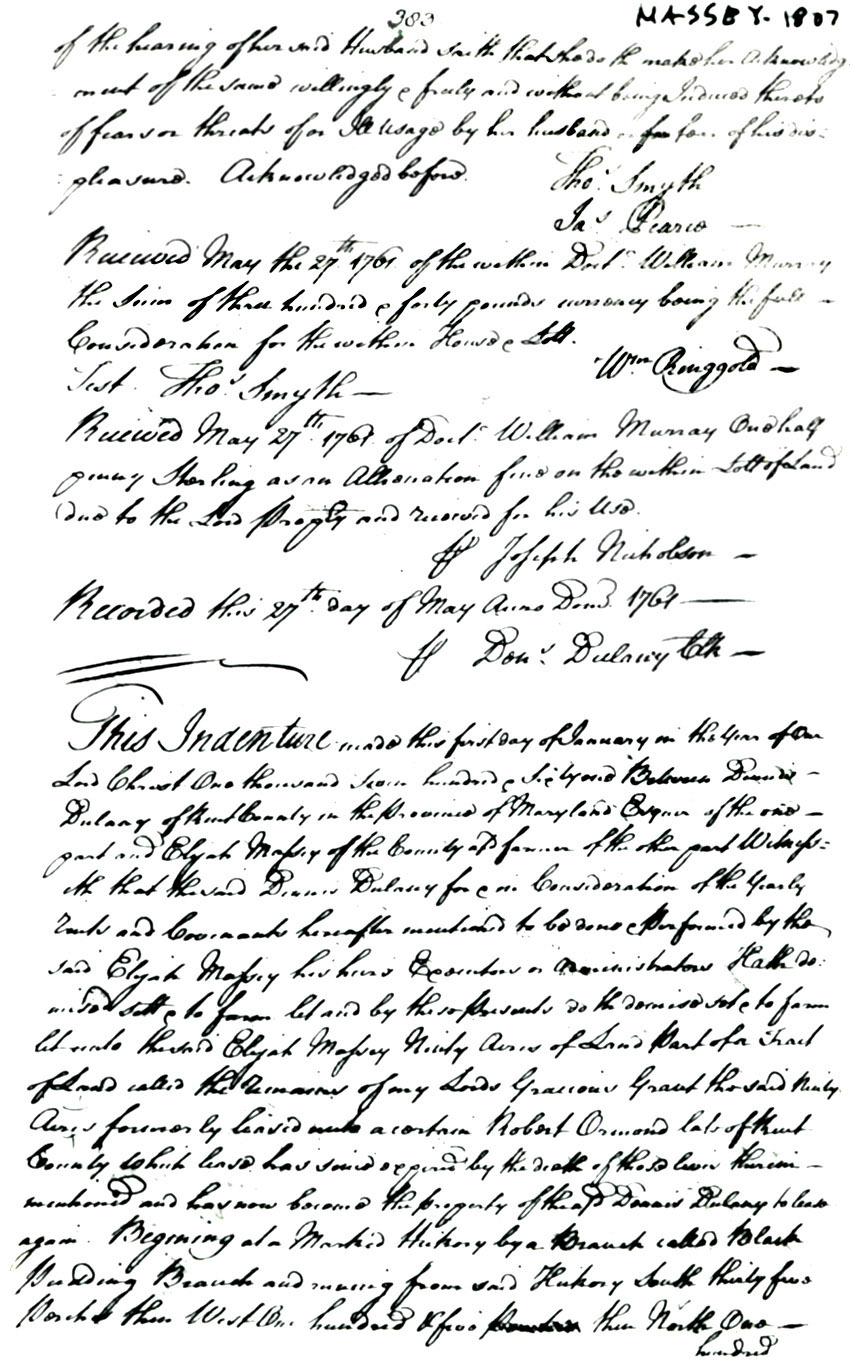 383
MASSEY - 1807
of the hearing of her said Husband saith that she doth make her Acknowledg
ment of the same willingly & freely and without being Induced thereto
of fears or threats of or Ill Usage by her husband or for fear of his dis=
pleasure. Acknowledged before.
Thos. Smyth
Jas. Pearce —
Received May the 27th 1761 of the within Doctr. William Murray
the sum of three hundred & forty pounds currency being the full —
Consideration for the within House & Lott.
Wm Ringgold —
Test. Thos. Smyth —
Received May 27th 1761 of Doctr. William Murray One half
penny Sterling as an Allienation fine on the within Lott of Land
due to the Lord Propty and received for his Use.
⅌ Joseph Nicholson —
Recorded this 27th day of May Anno Dom. 1761 —
⅌ Dens. Dulany Clk —
This Indenture made this first day of January in the Year of Our
Lord Christ One thousand seven hundred & Sixty one Between Dennis —
Dulany of Kent County in the Province of Maryland Esquer of the one —
part and Elijah Massey of the County afd farmer of the other part Witness=
eth that the said Dennis Dulany for & in Consideration of the Yearly
rents and Covenants hereafter mentioned to be done & Performed by the
said Elijah Massey his heirs Executors or Administrators Hath de:
mised sett & to farm let and by these Presents doth demise set & to farm
let unto the said Elijah Massey Ninty Acres of Land Part of a Tract
of Land called the Remains of my Lords Gracious Grant the said Ninty
Acres formerly leased unto a certain Robert Ormond late of Kent
County which lease has since expired by the death of those lives therein —
mentioned and has now become the Property of the afd Dennis Dulany to lease
again. Begining at a Marked Hickory by a Branch called Black
Pudding Branch and runing from said Hickory South thirty five
Perches then West One hundred & five then North One —
hundred